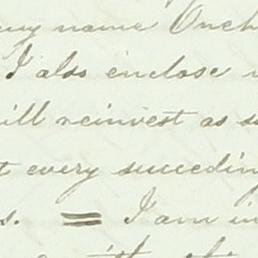 my name Onch
I also enclose
ill reinvest as s
t every succeedin
s. = I am in